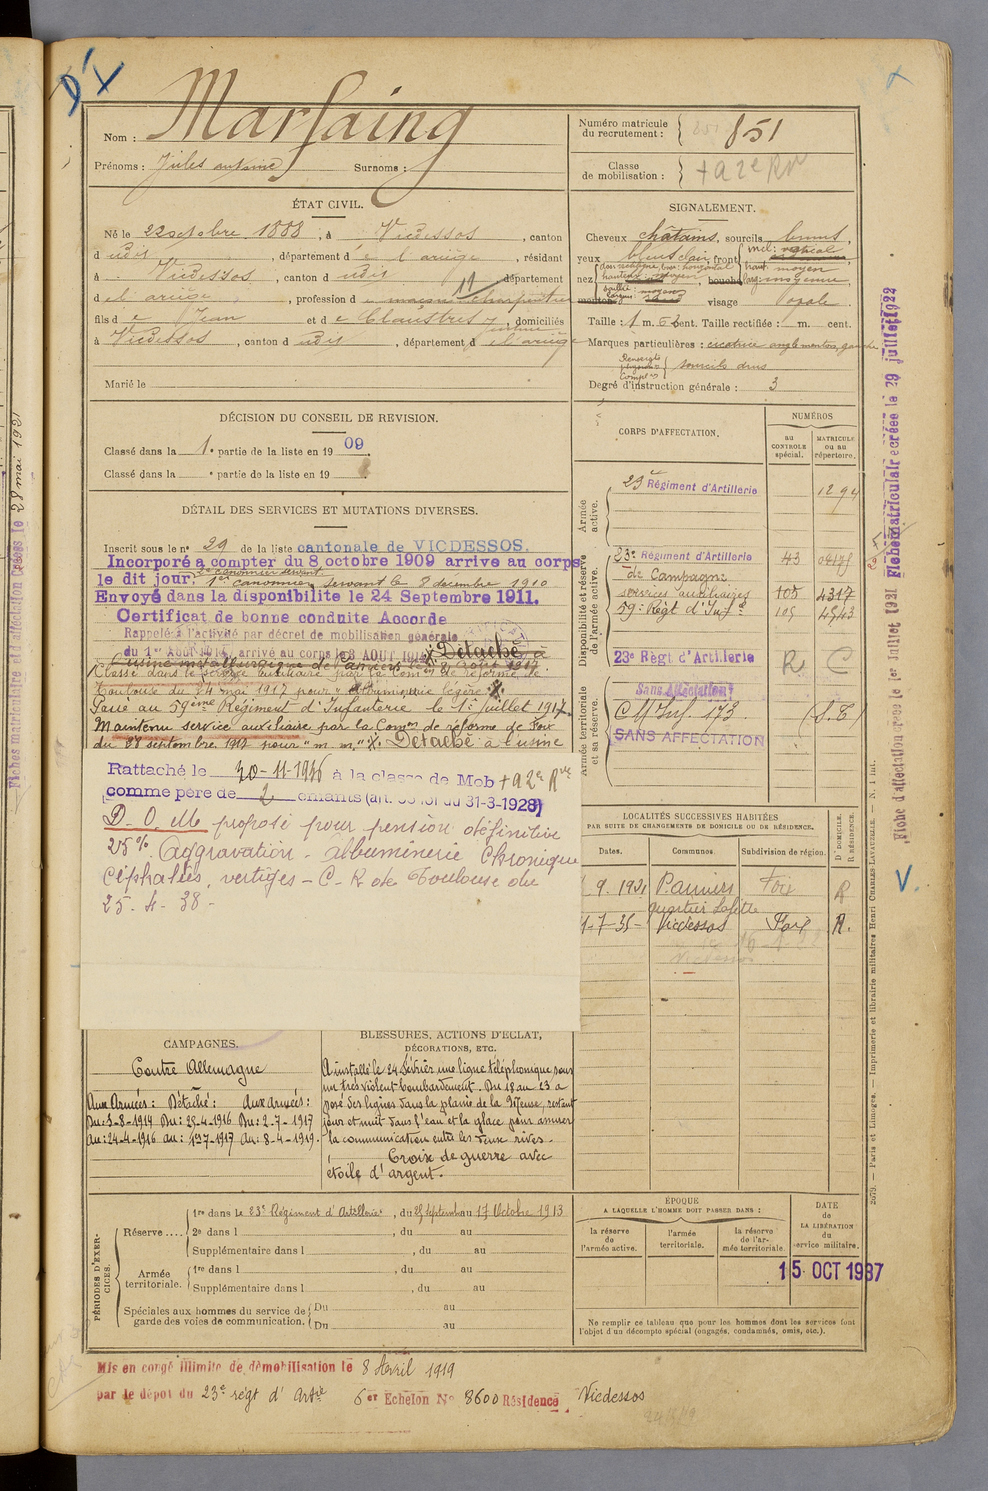 Marfaing
Nom :
Prénoms : Jules antoine Surnoms :
Numéro matricule
du recrutement : 851
Classe
de mobilisation : + a 2e Rve
ÉTAT CIVIL.
Né le 22 octobre 1888, à Vicdessos, canton
d udit, département d e l'ariège, résidant
à Vicdessos, canton d udit département
d e l'ariège, profession d e charpentier
fils d e Jean et d e Claustres domiciliés
à Vicdessos, canton d udit, département d e l'ariège
Marié le
SIGNALEMENT.
Cheveux châtains, sourcils bruns,
yeux bleus clair, front incl: vertical
haut: moyen
nez dos rectiligne, base horizontal
hauteur: moyen bouche larg: moyenne,
saillie: moyen
menton visage ovale
Taille : 1 m. 62 cent. Taille rectifiée : m. cent.
Marques particulières : cicatrice angle menton gauche
Renseigts
physion
Complres sourcils drus
Degré d'instruction générale : 3
DÉCISION DU CONSEIL DE REVISION.
Classé dans la 1e partie de la liste en 1909
Classé dans la e partie de la liste en 19
DÉTAIL DES SERVICES ET MUTATIONS DIVERSES.
Inscrit sous le no 29 de la liste cantonale de VICDESSOS.
Incorporé a compter du 8 octobre 1909 arrive au corps
le dit jour. 2e canonnier servant
1er canonnier servant le 8 décembre 1910
Envoyé dans la disponibilite le 24 Septembre 1911.
Certificat de bonne conduite Accorde
Rappelé à l'activité par décret de mobilisation générale
du 1er Août 1914, arrivé au corps le 3 AOUT 1914 Détaché à
l'usine métallurgique de Pamiers
Classé dans le service auxiliaire par la Comon de réforme de
Toulouse du 24 mai 1917 pour "Albuminurie légère"
Passé au 59ème Régiment d'Infanterie le 1er juillet 1917
Maintenu service auxiliaire par la Comon de réforme de Foix
du 28 septembre 1917 pour "m. m." Détaché à l'usine
Rattaché le 30-11-1936 à la classe de Mob + a 2e Rve
comme père de 2 enfants (art. 58 loi du 31-3-1928)
D. O. M proposé pour pension définitive
25% Aggravation - albuminerie chronique
Céphalées, vertiges - C. R de Toulouse du
25-4-38-
CORPS D'AFFECTATION.
NUMÉROS
au
CONTROLE
spécial.
MATRICULE
ou au
répertoire.
Armée
active.
23e Régiment d'Artillerie 1294
Disponibilité et réserve
de l'armée active.
23e Régiment d'Artillerie 43 04175
de Campagne
services auxiliaires 105 4317
59e Régt d'Infie 105 4543
23e Régt d'Artillerie R C
Armée territoriale
et sa réserve.
Sans Affectation
C M Inf. 173 (S.E)
SANS AFFECTATION
LOCALITÉS SUCCESSIVES HABITÉES
PAR SUITE DE CHANGEMENTS DE DOMICILE OU DE RÉSIDENCE.
Dates. Communes. Subdivision de région. D. DOMICILE.
R. RÉSIDENCE.
9. 1921 Pamiers Foix R
quartier Lafitte
1-7-35- Vicdessos Foix R.
CAMPAGNES.
Contre Allemagne
Aux Armées : Détaché : Aux armées :
Du : 3-8-1914 Du : 25-4-1916 Du : 2-7-1917
au : 24-4-1916 au : 1-7-1917 au : 8-4-1919.
BLESSURES, ACTIONS D'ÉCLAT,
DÉCORATIONS, ETC.
A installé le 24 février une ligne téléphonique sous
un très violent bombardement. Du 18 au 23 a
posé des lignes dans la plaine de la Meuse, restant
jour et nuit dans l'eau et la glace pour assurer
la communication entre les deux rives.
Croix de guerre avec
étoile d'argent.
PÉRIODES D'EXERCICES.
Réserve ....
1re dans le 23e Régiment d'Artillerie, du 25 septembre au 17 Octobre 1913
2e dans l , du au
Supplémentaire dans l , du au
Armée
territoriale.
1re dans l , du au
Supplémentaire dans l , du au
Spéciales aux hommes du service de
garde des voies de communication.
Du au
Du au
ÉPOQUE
A LAQUELLE L'HOMME DOIT PASSER DANS :
la réserve
de
l'armée active.
l'armée
territoriale.
la réserve
de l'ar-
mée territoriale
DATE
de
LA LIBÉRATION
du
service militaire.
15 OCT 1937
Ne remplir ce tableau que pour les hommes dont les services font
l'objet d'un décompte spécial (engagés, condamnés, omis, etc.).
Mis en congé illimité de démobilisation le 8 Avril 1919
par le dépot du 23e régt d' Artie 6er Echelon No 3600 Résidence Vicdessos
Fiche d'affectation créée le 1er Juillet 1921 Fiche matriculaire créée le 29 juillet 1922
2079. — Paris et Limoges. — Imprimerie et librairie militaires Henri CHARLES-LAVAUZELLE. — N. 1 int.
V.
Fiches matriculaire et d'affectation créées le 28 mai 1921